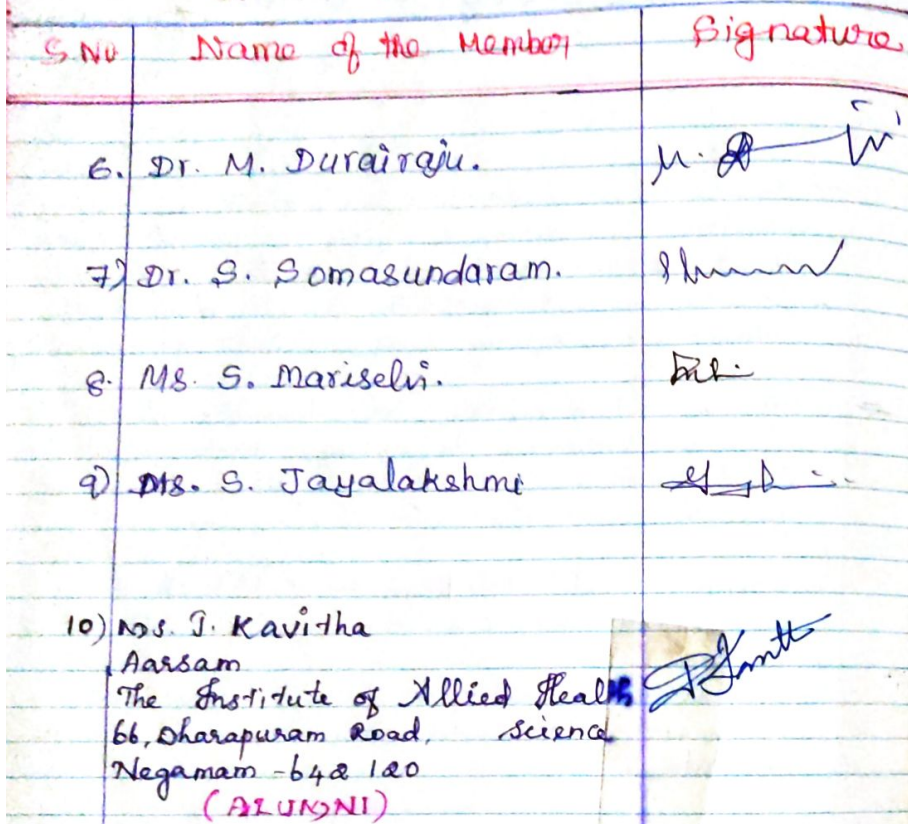 S.NO Name of the Member Signature
6. Dr. M. Durairaju.
7) Dr. S. Somasundaram.
8. Ms. S. Mariselvi.
9) Ms. S. Jayalakshmi
10) Ms. J. Kavitha
Aarsam
The Institute of Allied Health
66, Dharapuram Road, Science
Negamam - 642 120
(ALUMNI)